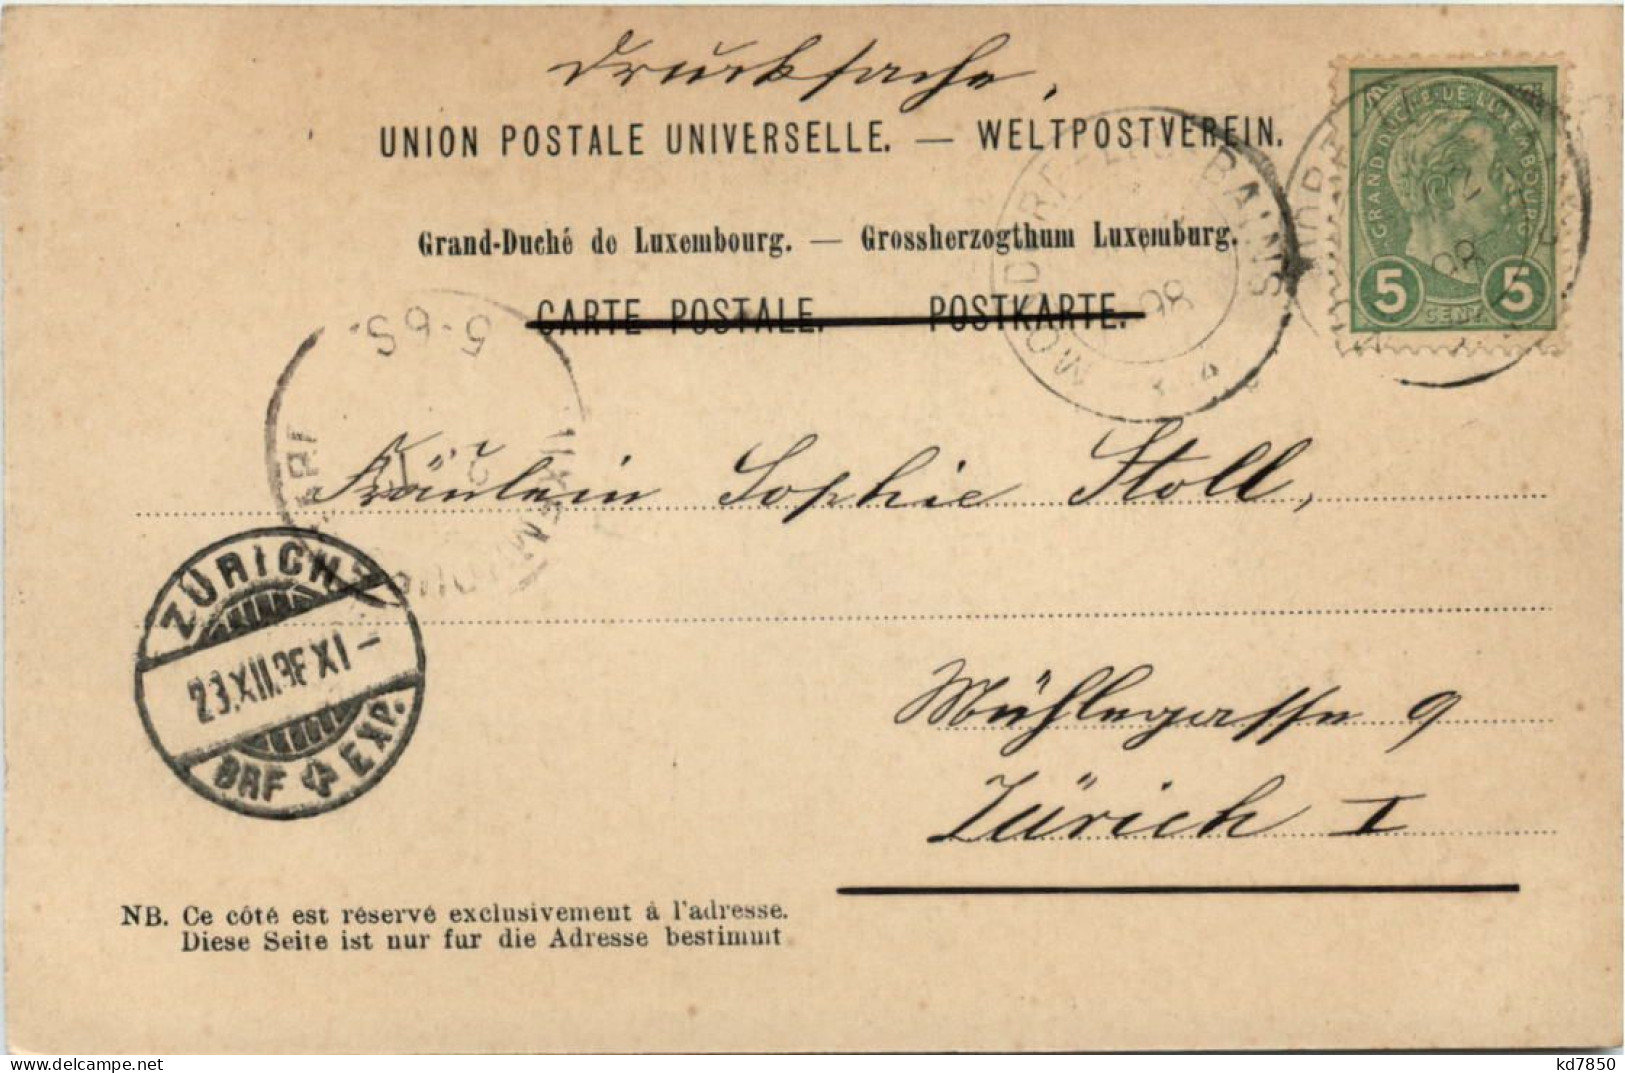 Drucksache.
UNION POSTALE UNIVERSELLE. — WELTPOSTVEREIN.
Grand-Duché de Luxembourg. — Grossherzogthum Luxemburg.
CARTE POSTALE. POSTKARTE.
GRAND DUCHÉ DE LUXEMBOURG
5 5
CENT.
MONDORF-LES-BAINS
98
98
5-6S.
Fräulein Sophie Stoll,
ZÜRICH
23.XII.98 XI-
BRF EXP.
Mühlegasse 9
Zürich I
NB. Ce côté est réservé exclusivement à l'adresse.
Diese Seite ist nur fur die Adresse bestimmt
delcampe.net
kd7850